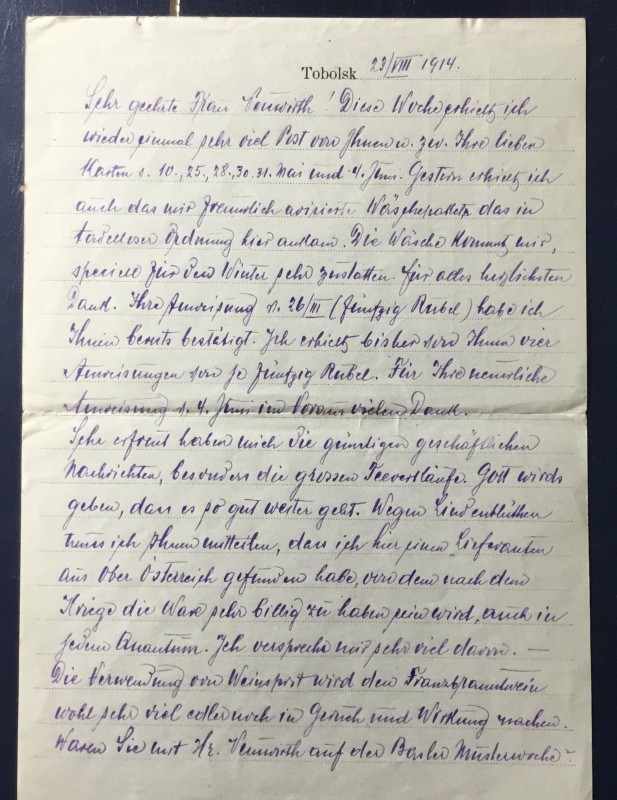 Tobolsk 23/VIII 1914.
Sehr geehrte Frau Neuwirth! Diese Woche erhielt ich
wieder einmal sehr viel Post von Ihnen u. zw. Ihre lieben
Karten v. 10., 25., 28., 30. 31. Mai und 4. Juni. Gestern erhielt ich
auch das mir freundlich avisierte Wäschepaket, das in
tadelloser Ordnung hier ankam. Die Wäsche kommt mir,
speciell für den Winter sehr zustatten. Für alles herzlichsten
Dank. Ihre Anweisung v. 26/III (fünfzig Rubel) habe ich
Ihnen bereits bestätigt. Ich erhielt bisher von Ihnen vier
Anweisungen von je fünfzig Rubel. Für Ihre neuerliche
Anweisung v. 4. Juni im Voraus vielen Dank.
Sehr erfreut haben mich die günstigen geschäftlichen
Nachrichten, besonders die grossen Teeverkäufe. Gott wirds
geben, dass es so gut weiter geht. Wegen Lindenblüthen
muss ich Ihnen mitteilen, dass ich hier einen Lieferanten
aus Ober Österreich gefunden habe, von dem nach dem
Kriege die Ware sehr billig zu haben sein wird, auch in
jedem Quantum. Ich verspreche mir sehr viel davon. —
Die Verwendung von Weinsprit wird den Franzbranntwein
wohl sehr viel edler noch in Geruch und Wirkung machen.
Waren Sie mit Hr. Neuwirth auf der Basler Musterwoche?